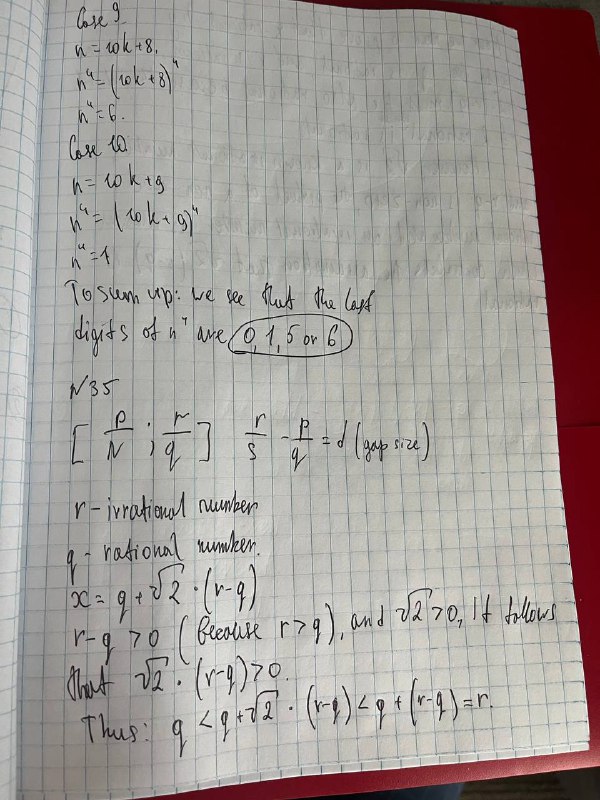 Case 9
n = 10k+8.
n⁴ = (10k+8)⁴
n⁴ = 6.
Case 10
n = 10k+9
n⁴ = (10k+9)⁴
n⁴ = 1
To sum up: we see that the last
digits of n⁴ are 0, 1, 5 or 6
N35
[ p/N ; r/q ] r/s - p/q = d (gap size)
r - irrational number
q - rational number.
x = q + √2 · (r-q)
r-q > 0 (because r > q), and √2 > 0, It follows
that √2 · (r-q) > 0.
Thus: q < q + √2 · (r-q) < q + (r-q) = r.